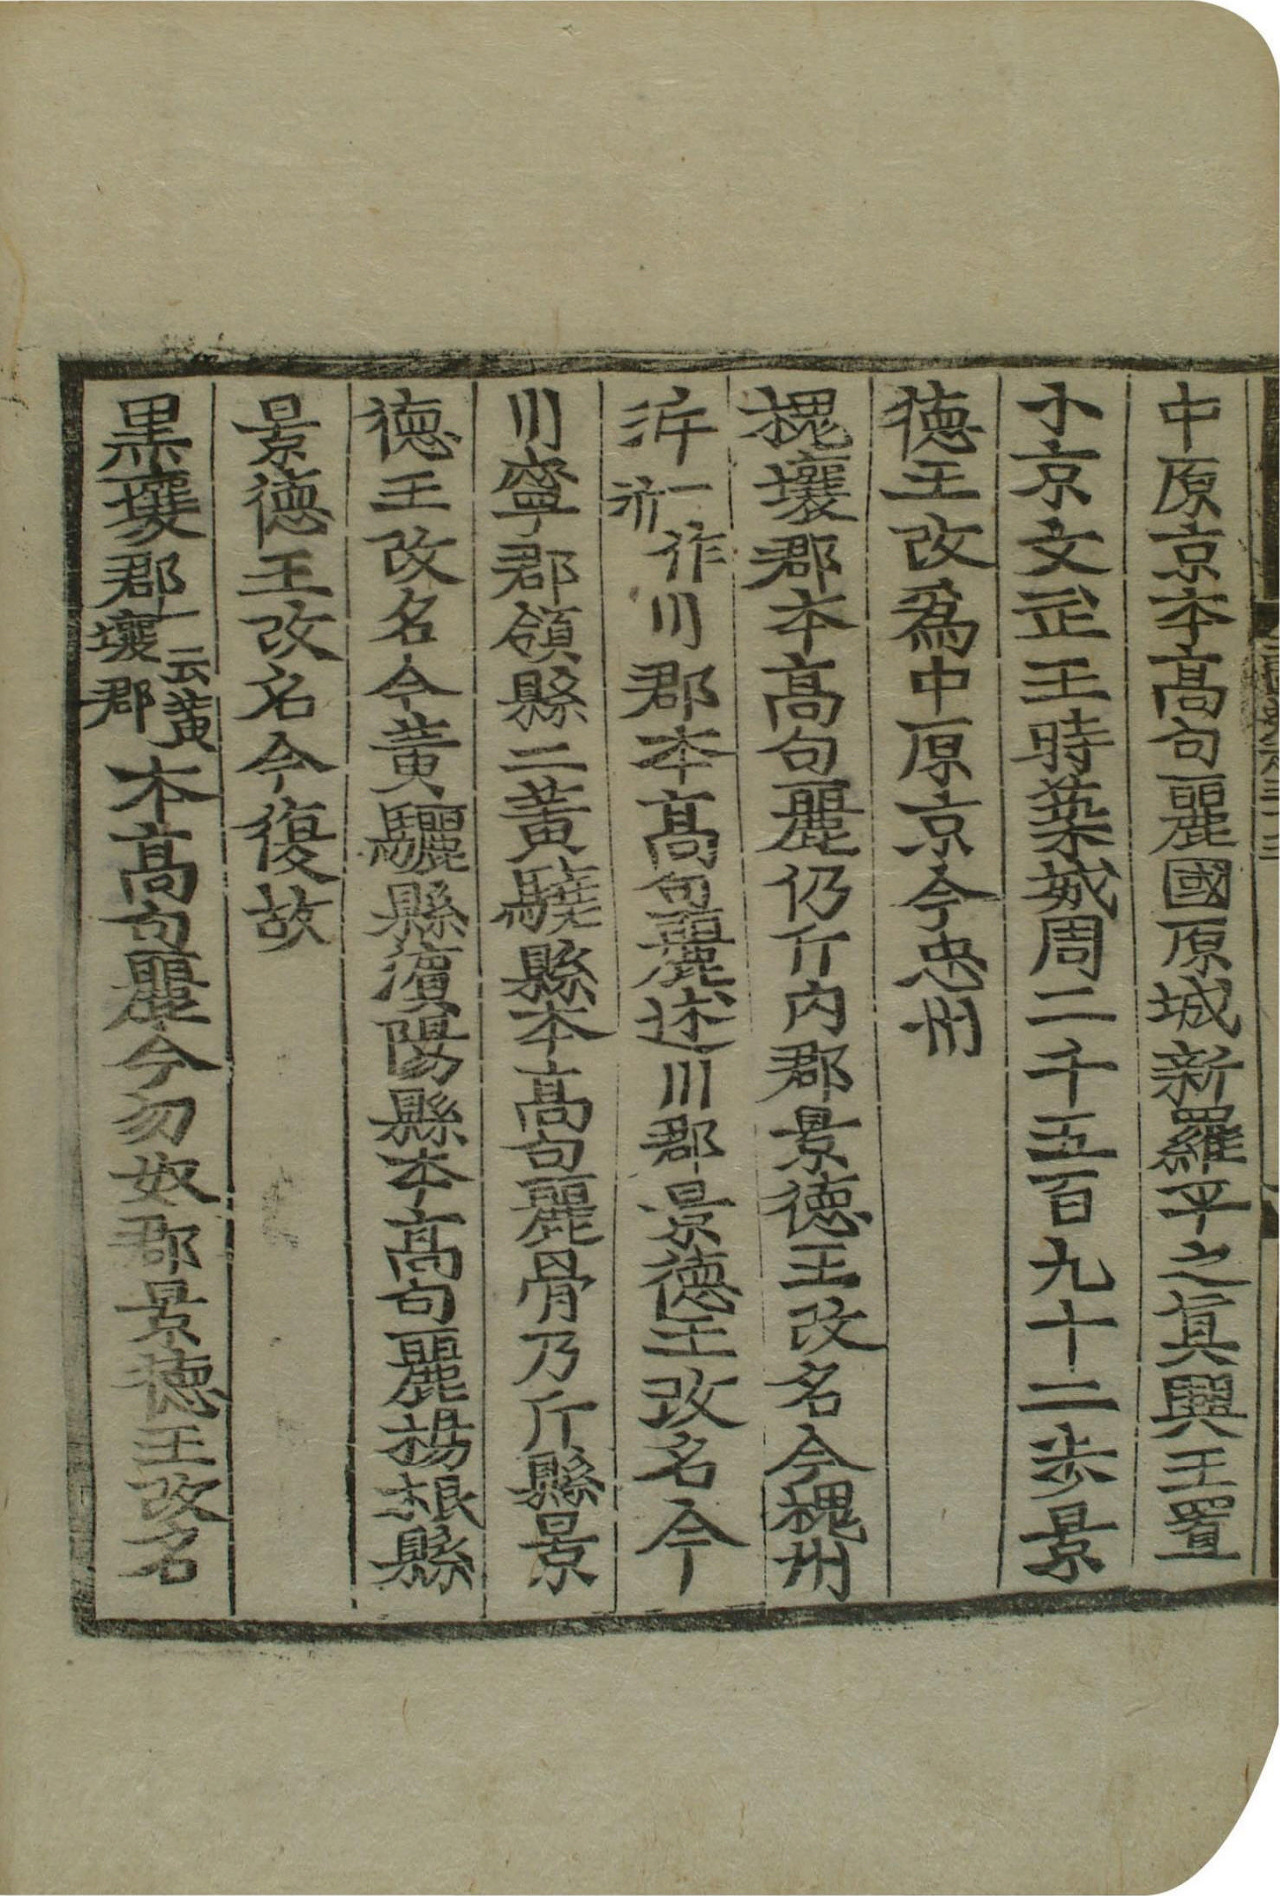 中原京本髙句麗國原城新羅平之眞興王置
小京文武王時築城周二千五百九十二歩景
徳王改爲中原京今忠州
槐壤郡本髙句麗仍斤内郡景徳王改名今槐州
泝一作沂川郡本髙句麗述川郡景徳王改名今
川寧郡領縣二黄驍縣本髙句麗骨乃斤縣景
徳王改名今黄驪縣濱陽縣本髙句麗楊根縣
景徳王改名今復故
黒壤郡一云黄壤郡本髙句麗今勿奴郡景徳王改名